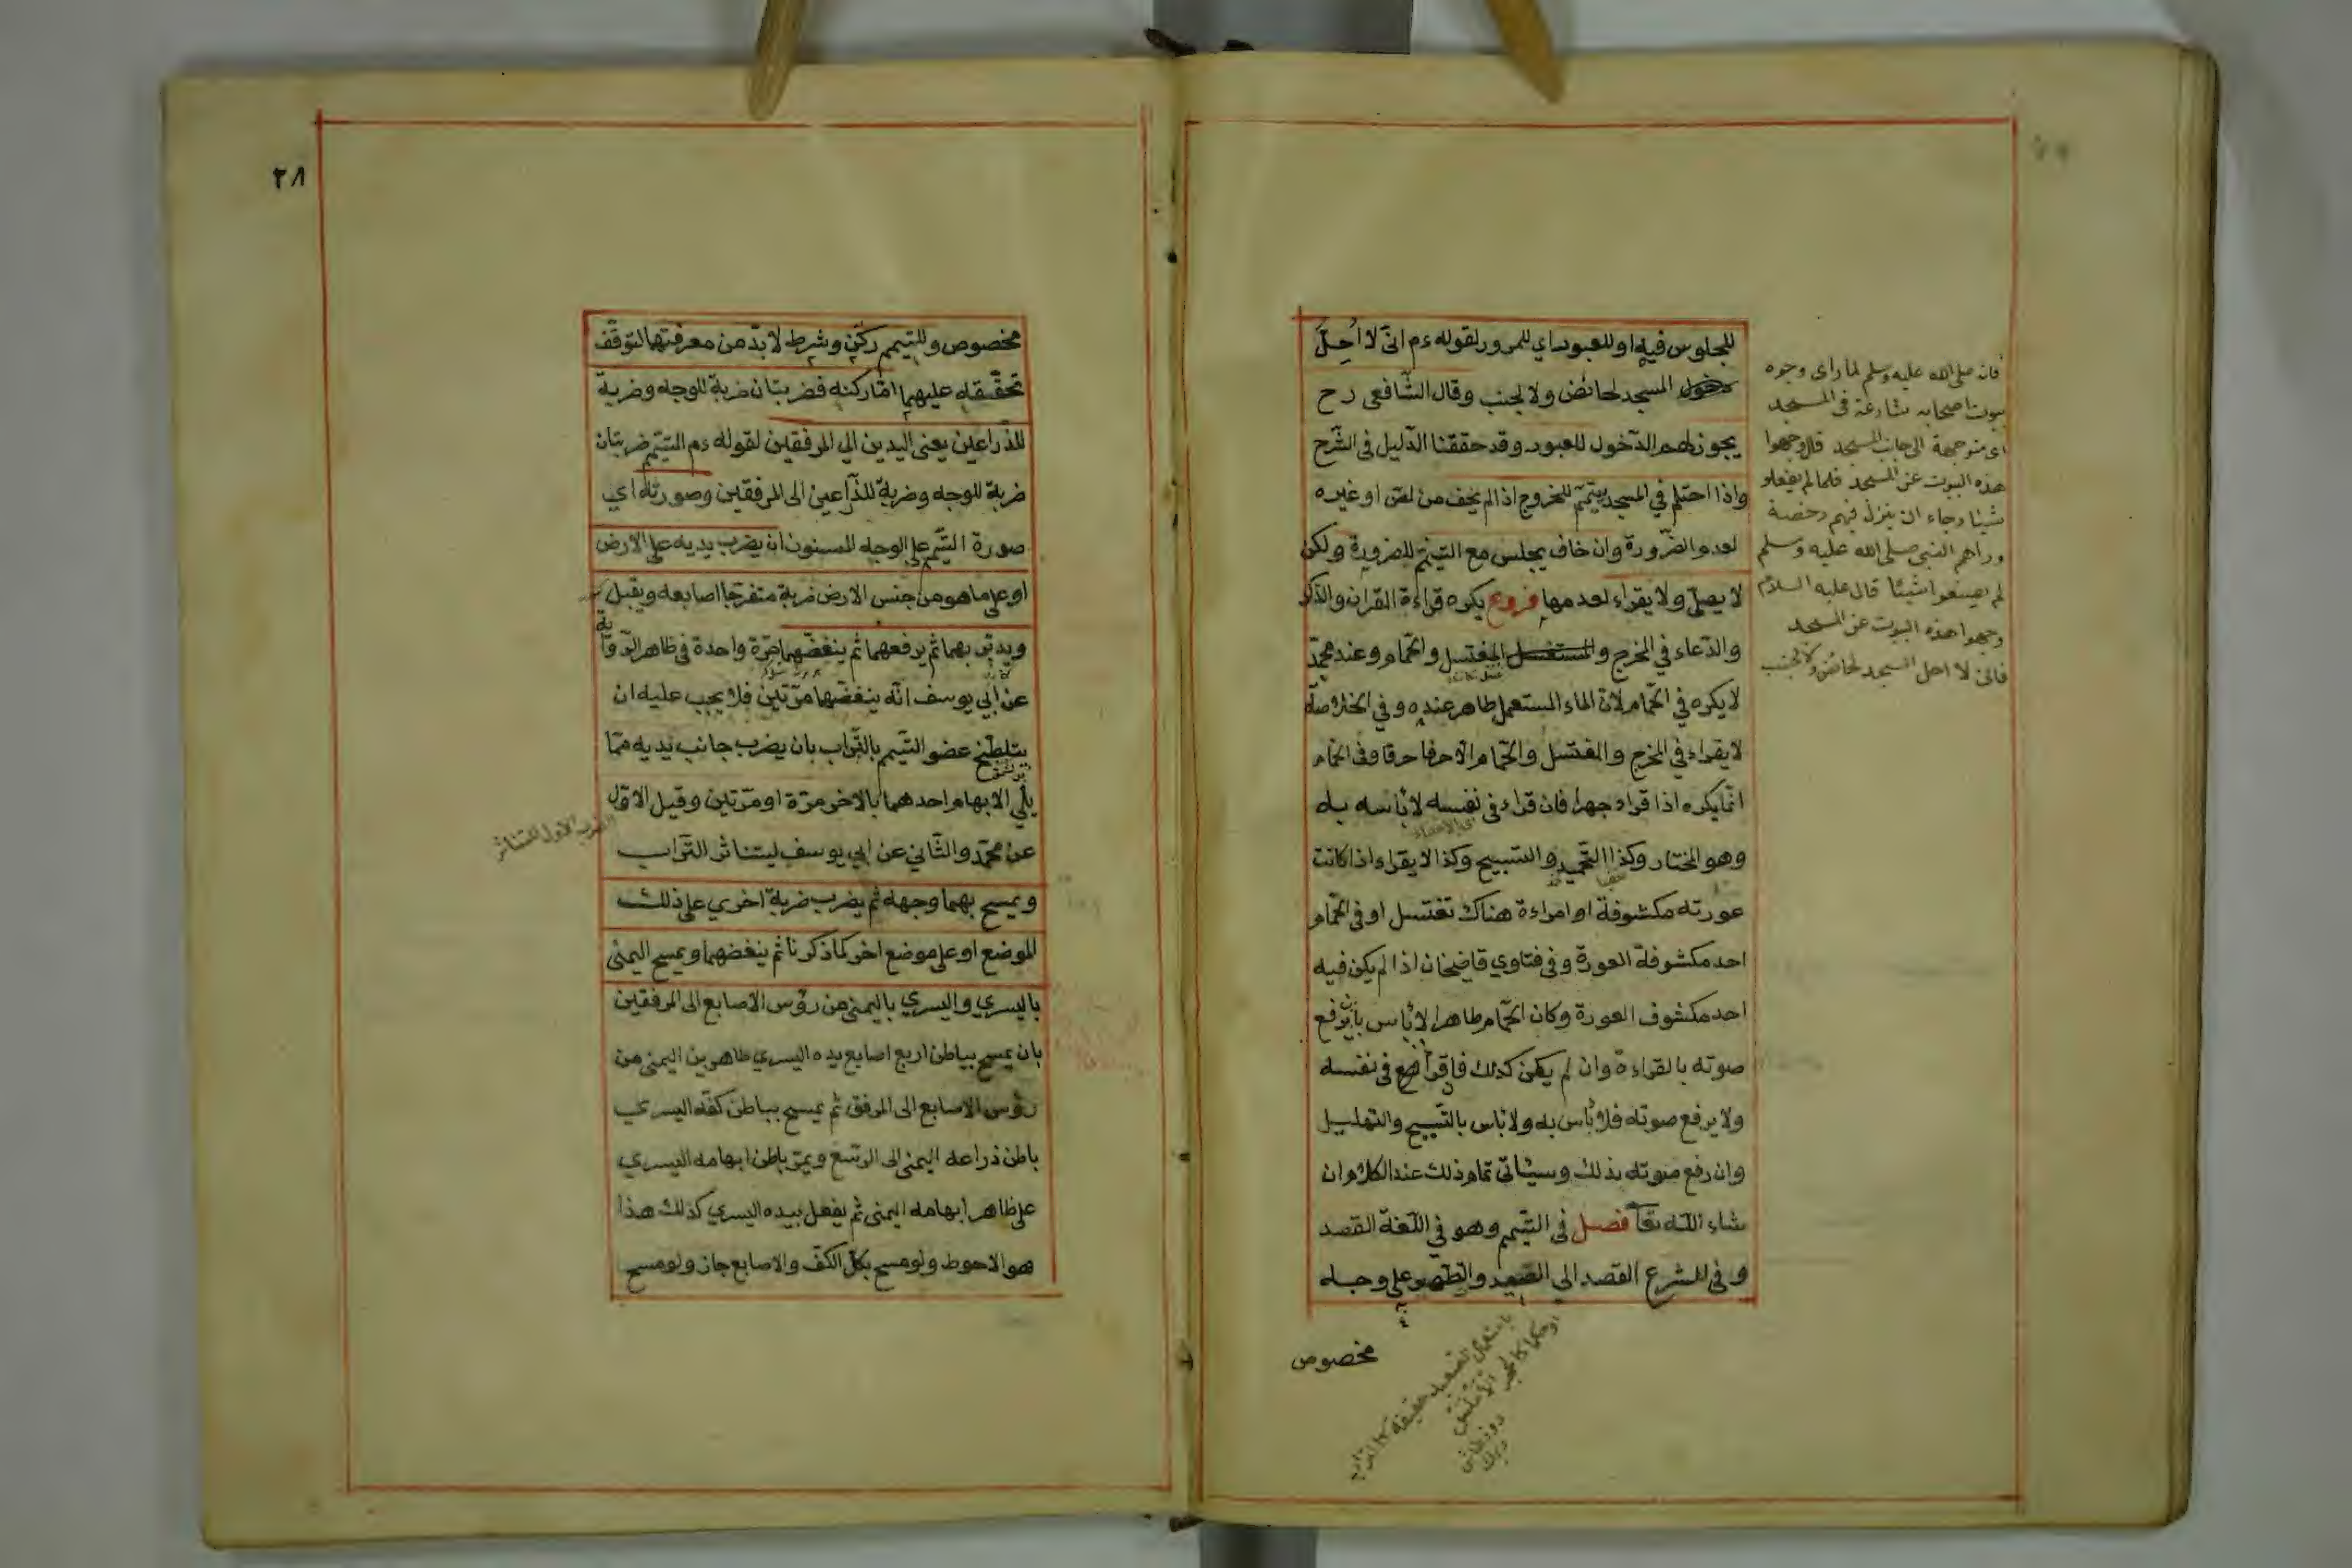 للجلوس فيه او للعبور اي للمرور لقوله عم انى لا احل
دخول المسجد لحائض ولا لجنب وقال الشافعى رح
يجوز لهم الدخول للعبور وقد حققنا الدليل فى الشرح
واذا احتلم في المسجد يتيمم للخروج اذا لم يخف من لص او غيره
لعدم الضرورة وان خاف يجلس مع التيمم للضرورة ولكن
لا يصلى ولا يقراء لعدمها فروع يكره قراءة القران والذكر
والدعاء في المخرج والمغتسل والحمام وعند محمد
لا يكره في الحمام لان الماء المستعمل طاهر عنده وفي الخلاصة
لا يقراء في المخرج والمغتسل والحمام الا حرفا حرفا وفى الحمام
انما يكره اذا قراء جهرا فان قراء فى نفسه لا بأس به
وهو المختار وكذا التحميد والتسبيح وكذا لا يقراء اذا كانت
عورته مكشوفة او امراءة هناك تغتسل او فى الحمام
احد مكشوفة العورة وفى فتاوي قاضيخان اذا لم يكن فيه
احد مكشوف العورة وكان الحمام طاهرا لا بأس بان يرفع
صوته بالقراءة وان لم يكن كذلك فاقرأ فى نفسه
ولا يرفع صوته فلا بأس به ولا بأس بالتسبيح والتهليل
وان رفع صوته بذلك وسيأتى تمام ذلك عند الكلام ان
شاء الله تعا فصل فى التيمم وهو في اللغة القصد
وفى الشرع القصد الى الصعيد والتطهير على وجه
مخصوص
فانه صلى الله عليه وسلم لما راى وجوه
بيوت اصحابه شارعة فى المسجد
اى متوجهة الى جانب المسجد قال وجهوا
هذه البيوت عن المسجد فلما لم يفعلو
شيئا رجاء ان ينزل فيهم رخصة
وراهم النبى صلى الله عليه وسلم
لم يصنعوا شيئا قال عليه السلام
وجهوا هذه البيوت عن المسجد
فانى لا احل المسجد لحائض ولا لجنب
٢٨
مخصوص وللتيمم ركن وشرط لا بد من معرفتها لتوقف
تحققه عليهما اما ركنه فضربتان ضربة للوجه وضربة
للذراعين يعنى اليدين الي المرفقين لقوله عم التيمم ضربتان
ضربة للوجه وضربة للذراعين الى المرفقين وصورته اي
صورة التيمم على الوجه المسنون ان يضرب يديه على الارض
او على ما هو من جنس الارض ضربة متفرجا اصابعه ويقبل
ويدبر بهما ثم يرفعهما ثم ينفضهما مرة واحدة فى ظاهر الرواية
عن ابي يوسف انه ينفضهما مرتين فلا يجب عليه ان
يتلطخ عضو التيمم بالتراب بان يضرب جانب يديه مما
يلي الابهام احدهما بالاخر مرة او مرتين وقيل الاول
عن محمد والثاني عن ابي يوسف ليتناثر التراب
ويمسح بهما وجهه ثم يضرب ضربة اخري على ذلك
الموضع او على موضع اخر كما ذكرنا ثم ينفضهما ويمسح اليمنى
باليسري واليسري باليمنى من رؤس الاصابع الى المرفقين
بان يمسح بباطن اربع اصابع يده اليسري ظاهر يده اليمنى من
رؤس الاصابع الى المرفق ثم يمسح بباطن كفه اليسري
باطن ذراعه اليمنى الى الرسغ ويمر باطن ابهامه اليسري
على ظاهر ابهامه اليمنى ثم يفعل بيده اليسري كذلك هذا
هو الاحوط ولو مسح بكل الكف والاصابع جاز ولو مسح